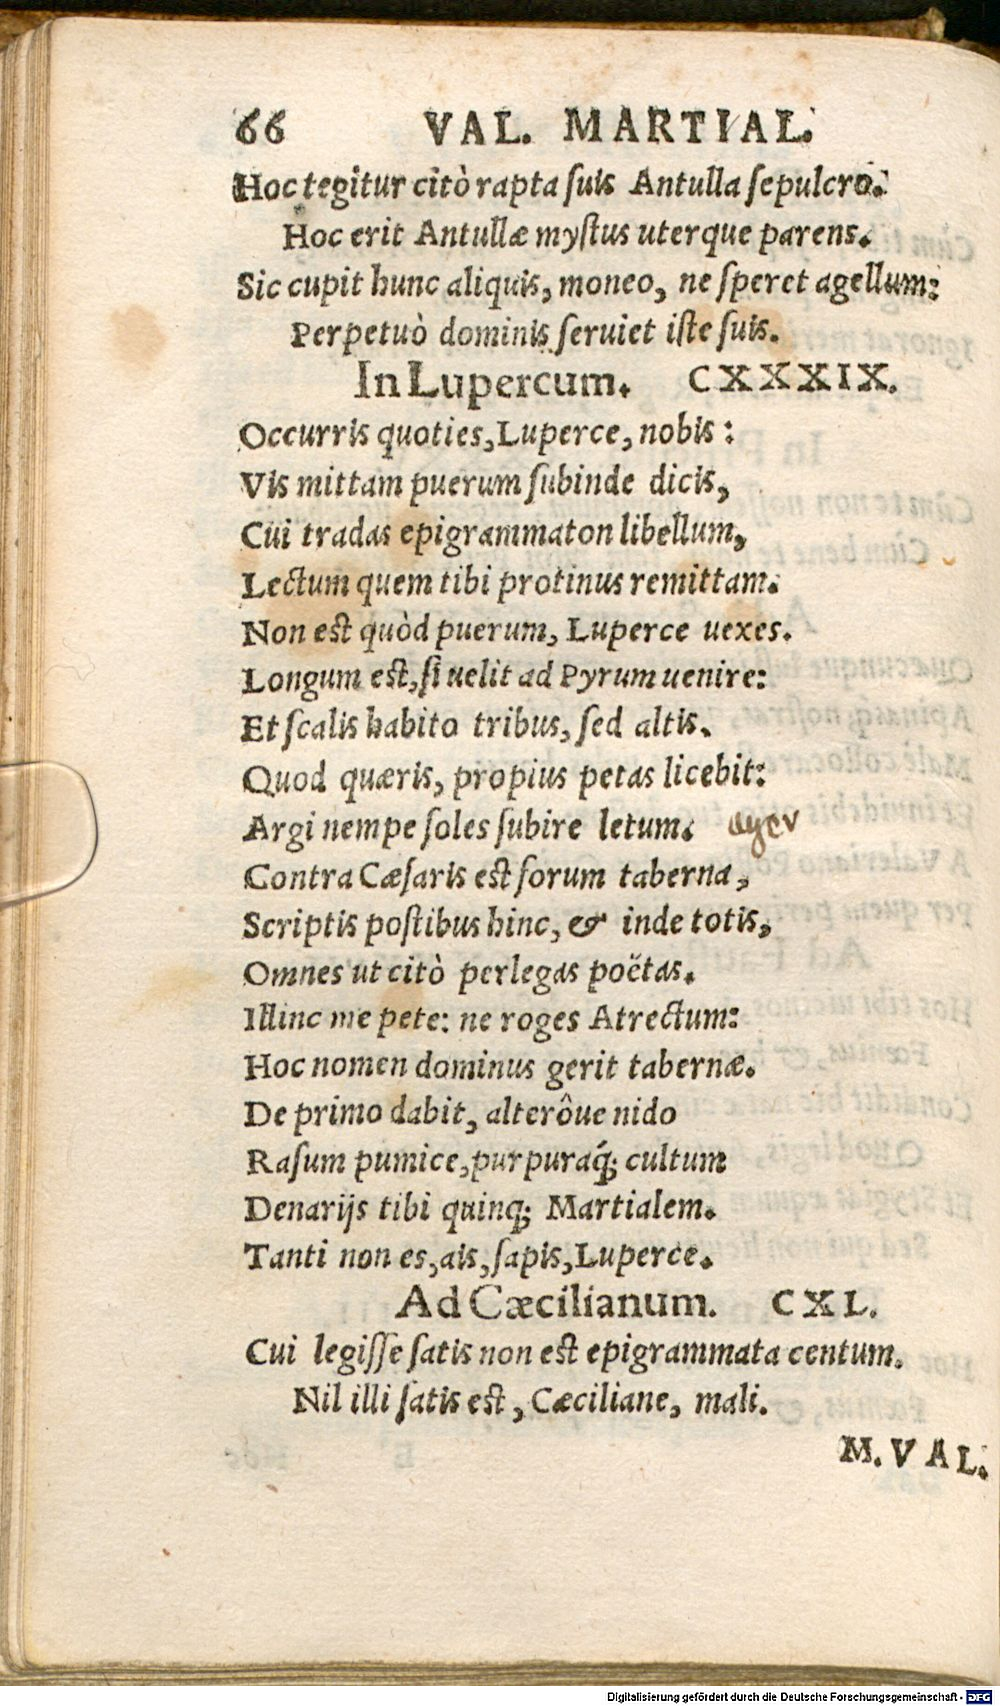 66 VAL. MARTIAL.
Hoc tegitur citò rapta suis Antulla sepulcro.
Hoc erit Antullæ mystus uterque parens.
Sic cupit hunc aliquis, moneo, ne speret agellum:
Perpetuò dominis seruiet iste suis.
In Lupercum. CXXXIX.
Occurris quoties, Luperce, nobis:
Vis mittam puerum subinde dicis,
Cui tradas epigrammaton libellum,
Lectum quem tibi protinus remittam.
Non est quòd puerum, Luperce uexes.
Longum est, si uelit ad Pyrum uenire:
Et scalis habito tribus, sed altis.
Quod quæris, propius petas licebit:
Argi nempe soles subire letum.
Contra Cæsaris est forum taberna,
Scriptis postibus hinc, & inde totis,
Omnes ut citò perlegas poëtas.
Illinc me pete: ne roges Atrectum:
Hoc nomen dominus gerit tabernæ.
De primo dabit, alterôue nido
Rasum pumice, purpuraq́; cultum
Denarijs tibi quinq; Martialem.
Tanti non es, ais, sapis, Luperce.
Ad Cæcilianum. CXL.
Cui legisse satis non est epigrammata centum.
Nil illi satis est, Cæciliane, mali.
M. VAL.
Digitalisierung gefördert durch die Deutsche Forschungsgemeinschaft - DFG